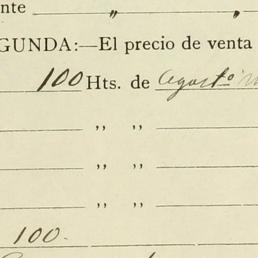 nte „ „
GUNDA:—El precio de venta
100 Hts. de Agosto
„ „
„ „
„ „
100.